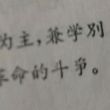 为主，兼学别
革命的斗争。